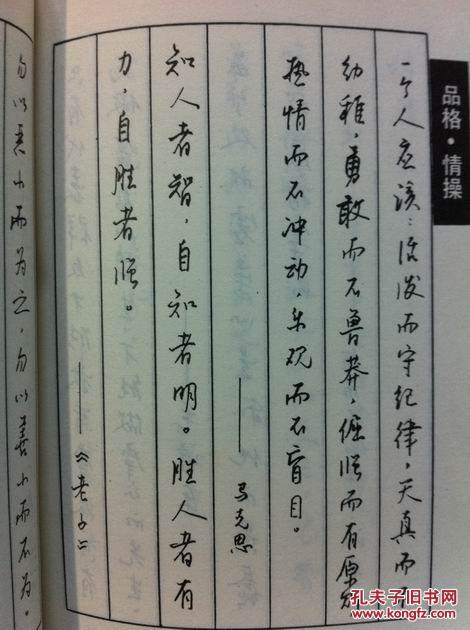 品格·情操
一个人应该：活泼而守纪律，天真而不
幼稚，勇敢而不鲁莽，倔强而有原则
热情而不冲动，乐观而不盲目。
——马克思
知人者智，自知者明。胜人者有
力，自胜者强。
——《老子》
勿以恶小而为之，勿以善小而不为。
孔夫子旧书网
www.kongfz.com